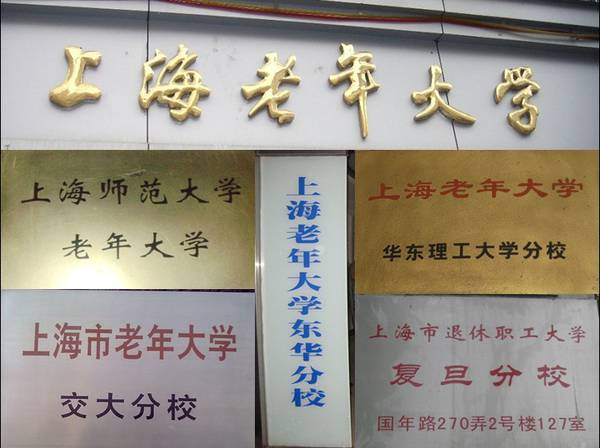 上海老年大学
上海师范大学
老年大学
上海老年大学东华分校
上海老年大学
华东理工大学分校
上海市老年大学
交大分校
上海市退休职工大学
复旦分校
国年路270弄2号楼127室